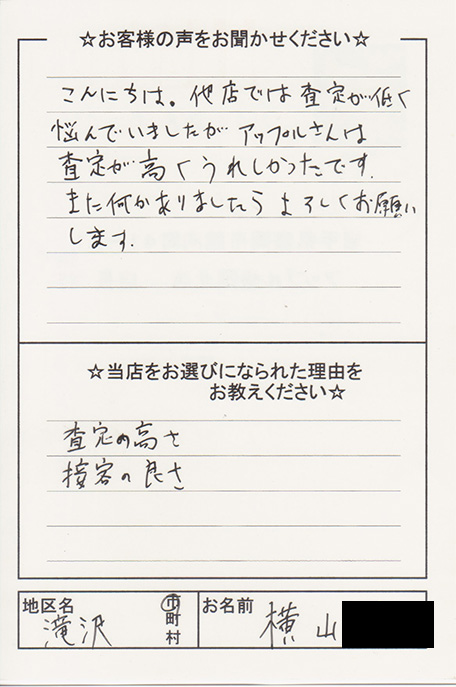 ☆お客様の声をお聞かせください☆
こんにちは。他店では査定が低く
悩んでいましたが アップルさんは
査定が高くうれしかったです.
また何かありましたら よろしくお願い
します.
☆当店をお選びになられた理由を
お教えください☆
査定の高さ
接客の良さ
地区名 滝沢 市町村 お名前 横山